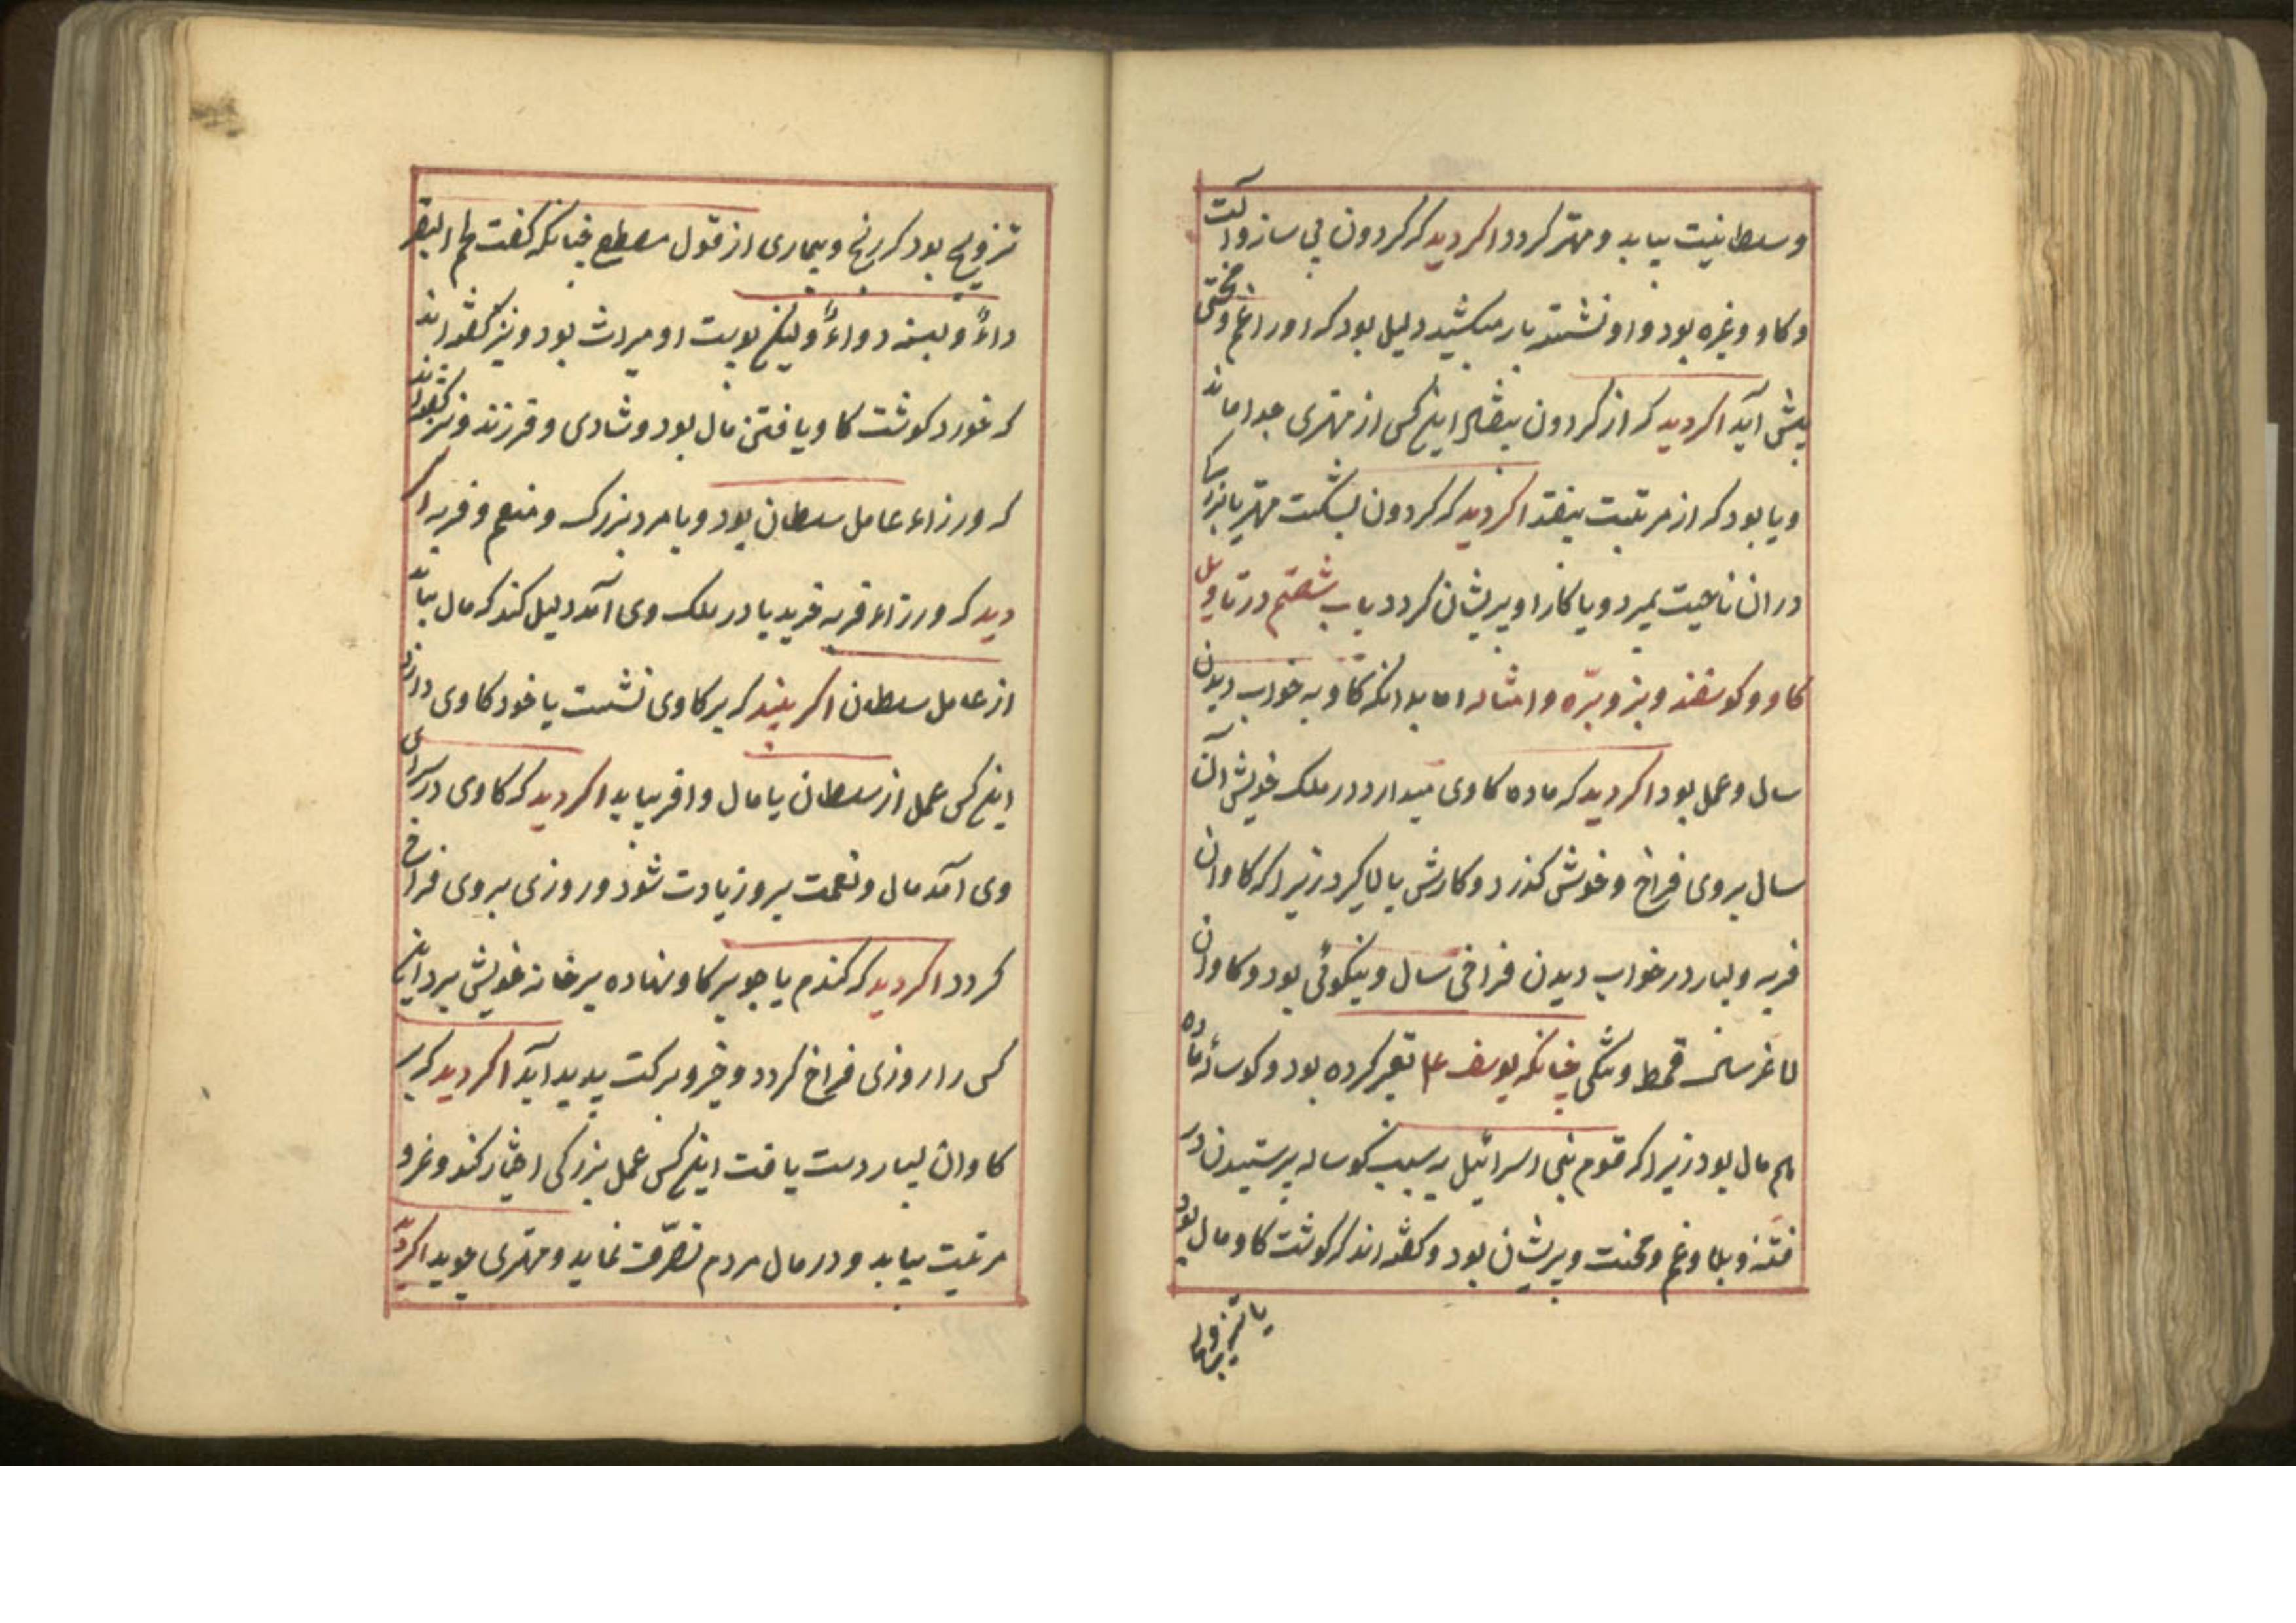 وسلطانیت بیابد و مهتر کردد اکر دید که کردون بی ساز و آلت
و کاو و غیره بود و او نشسته بار میکشید دلیل بود که او را غم و محنتی
پیش آید اکر دید که از کردون بیفتاد اینکس از مهتری جدا ماند
و یا بود که از مرتبت بیفتد اکر دید که کردون بشکست مهتر یا بزرک
در ان ناحیت بمیرد و یا کار او پریشان کردد باب شصتم در تاویل
کاو و کوسفند و بز و برّه و امثاله اما بدانکه کاو به خواب دیدن
سال و عمل بود اکر دید که ماده کاوی میدارد در ملک خویش آن
سال بروی فراخ و خوش کذرد و کارش بالا کیرد زیرا که کاوان
فربه و بسیار در خواب دیدن فراخی سال و نیکوئی بود و کاوان
لاغر سال قحط و تنکی چنانکه یوسف ع م تعبیر کرده بود و کوساله ماده
هم مال بود زیرا که قوم بنی اسرائیل به سبب کوساله پرستیدن در
فتنه و بلا و غم و محنت و پریشان بود و کفته اند که کوشت کاو مال بود
یا تزویج
تزویج بود که رنج و بیماری از قول مصطفی چنانکه کفت لحم البقر
داءً و لبنه دواءً ولیکن پوست او میراث بود و نیز کفته اند
که خورد کوشت کاو یافتن مال بود و شادی و فرزند و نیز کفته اند
که ورزاء عامل سلطان بود و یا مرد بزرک و منعم و فربه اکر
دید که ورزاء فربه خرید یا در ملک وی آمد دلیل کند که مال بیابد
از عامل سلطان اکر بیند که بر کاوی نشست یا خود کاوی دارد
اینکس عمل از سلطان یا مال وافر بیابد اکر دید که کاوی در سرای
وی آمد مال و نعمت برو زیادت شود و روزی بروی فراخ
کردد اکر دید که کندم یا جو بر کاو نهاده بر خانه خویش برد این
کس را روزی فراخ کردد و خیر و برکت پدید آید اکر دید که بر
کاوان بسیار دست یافت اینکس عمل بزرکی اختیار کند و عز و
مرتبت بیابد و در مال مردم تصرّف نماید و مهتری جوید اکر دید